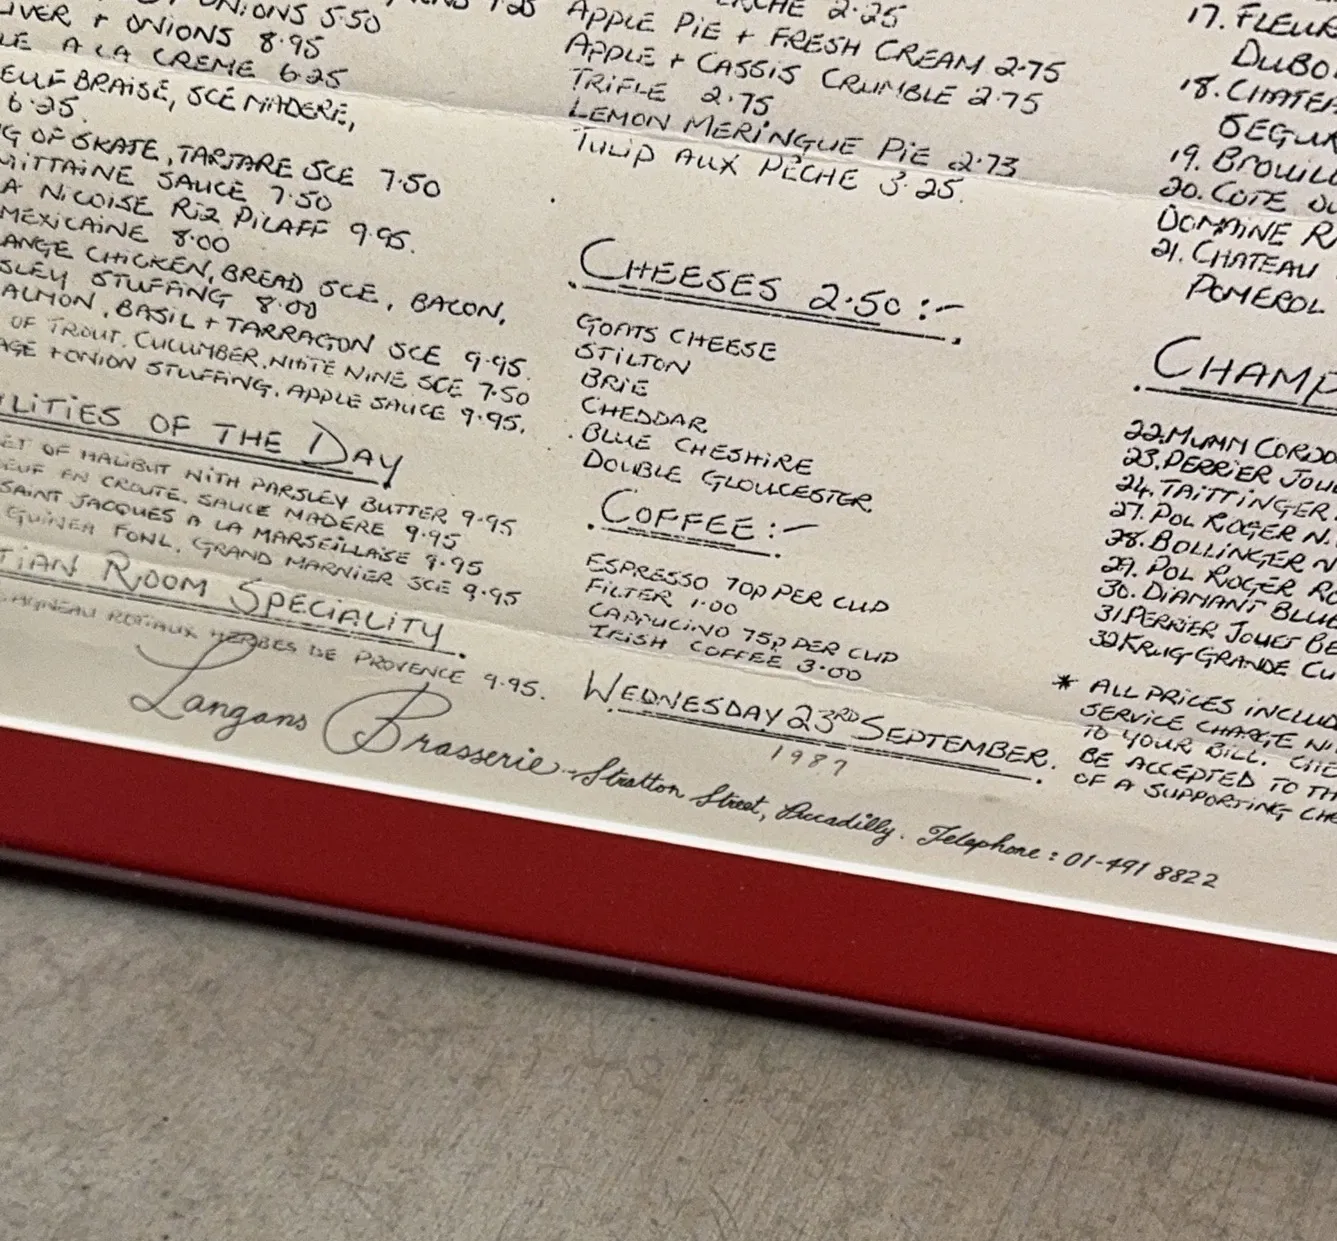 ONIONS 5.50
LIVER + ONIONS 8.95
A LA CREME 6.25
BRAISE, SCE MADERE,
6.25.
OF SKATE, TARTARE SCE 7.50
SAUCE 7.50
A NICOISE RIZ PILAFF 9.95.
MEXICAINE 8.00
CHICKEN, BREAD SCE, BACON,
STUFFING 8.00
BASIL + TARRAGON SCE 9.95.
OF TROUT, CUCUMBER, WHITE WINE SCE 7.50
+ ONION STUFFING, APPLE SAUCE 9.95.
OF THE DAY
OF HALIBUT WITH PARSLEY BUTTER 9.95
EN CROUTE, SAUCE MADERE 9.95
SAINT JACQUES A LA MARSEILLAISE 9.95
GUINEA FOWL, GRAND MARNIER SCE 9.95
ROOM SPECIALITY.
HERBES DE PROVENCE 9.95.
2.25
APPLE PIE + FRESH CREAM 2.75
APPLE + CASSIS CRUMBLE 2.75
TRIFLE 2.75
LEMON MERINGUE PIE 2.73
TULIP AUX PÊCHE 3.25.
CHEESES 2.50:-
GOATS CHEESE
STILTON
BRIE
CHEDDAR
BLUE CHESHIRE
DOUBLE GLOUCESTER
COFFEE:-
ESPRESSO 70p PER CUP
FILTER 1.00
CAPPUCINO 75p PER CUP
IRISH COFFEE 3.00
WEDNESDAY 23RD SEPTEMBER.
1987
17. FLEUR
18. CHATE
SEGUR
19. BROUIL
20. COTE
DOMAINE
21. CHATEAU
POMEROL
CHAMP
22. MUMM CORDO
23. PERRIER JOUE
24. TAITTINGER
27. POL ROGER N.
28. BOLLINGER N
29. POL ROGER RO
30. DIAMANT BLUE
31. PERRIER JOUET BE
32 KRUG GRANDE CU
* ALL PRICES INCLUD
SERVICE CHARGE
TO YOUR BILL. CHE
BE ACCEPTED TO TH
OF A SUPPORTING CHE
Langans Brasserie - Stratton Street, Piccadilly. Telephone: 01-491 8822